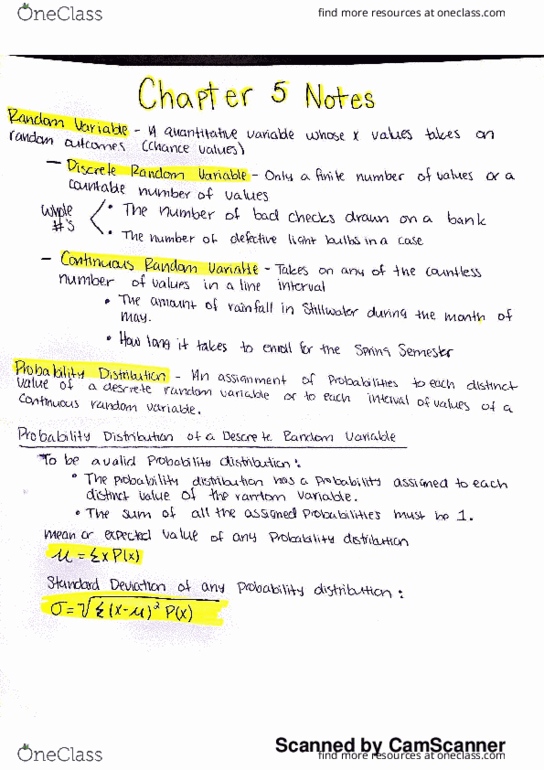 OneClass
find more resources at oneclass.com
Chapter 5 Notes
Random Variable - A quantitative variable whose x values takes on
random outcomes (chance values)
- Discrete Random Variable - Only a finite number of values or a
countable number of values
whole #'s
• The number of bad checks drawn on a bank
• The number of defective light bulbs in a case
- Continuous Random Variable - Takes on any of the countless
number of values in a line interval
• The amount of rainfall in Stillwater during the month of
may.
• How long it takes to enroll for the Spring Semester
Probability Distribution - An assignment of Probabilities to each distinct
value of a descrete random variable or to each interval of values of a
continuous random variable.
Probability Distribution of a Descrete Random Variable
To be a valid Probability distribution:
• The probability distribution has a Probability assigned to each
distinct value of the random variable.
• The sum of all the assigned Probabilities must be 1.
mean or expected value of any Probability distribution
μ = Σ x P(x)
Standard Deviation of any Probability distribution:
σ = √Σ (x-μ)² P(x)
Scanned by CamScanner
OneClass
find more resources at oneclass.com